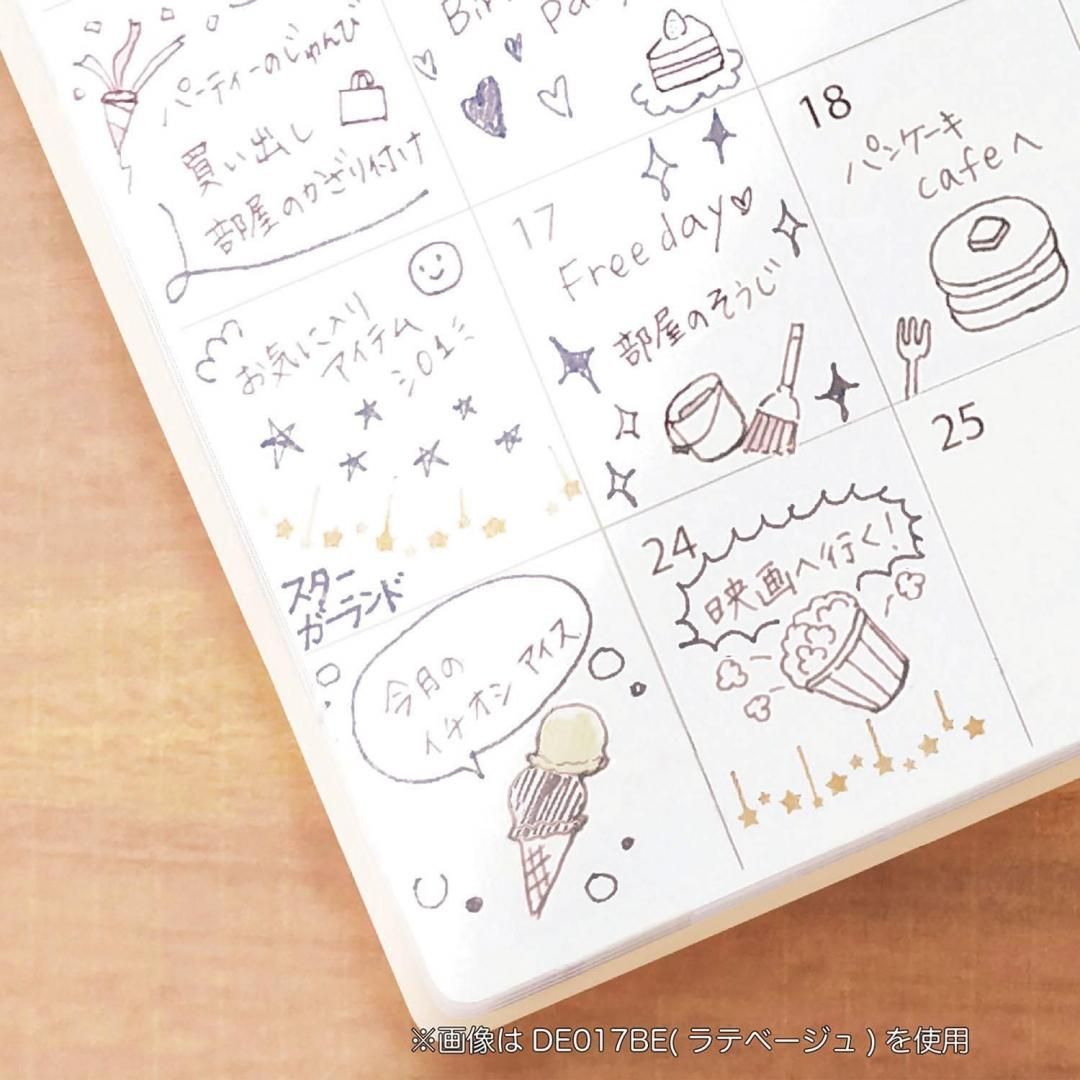 パーティーのじゅんび
買い出し
部屋のかざり付け
18
パンケーキ
cafeへ
17
Free day
部屋のそうじ
お気に入り
アイテム
スター
ガーランド
25
24
映画へ行く!
今月の
イチオシ アイス
※画像は DE017BE( ラテベージュ ) を使用